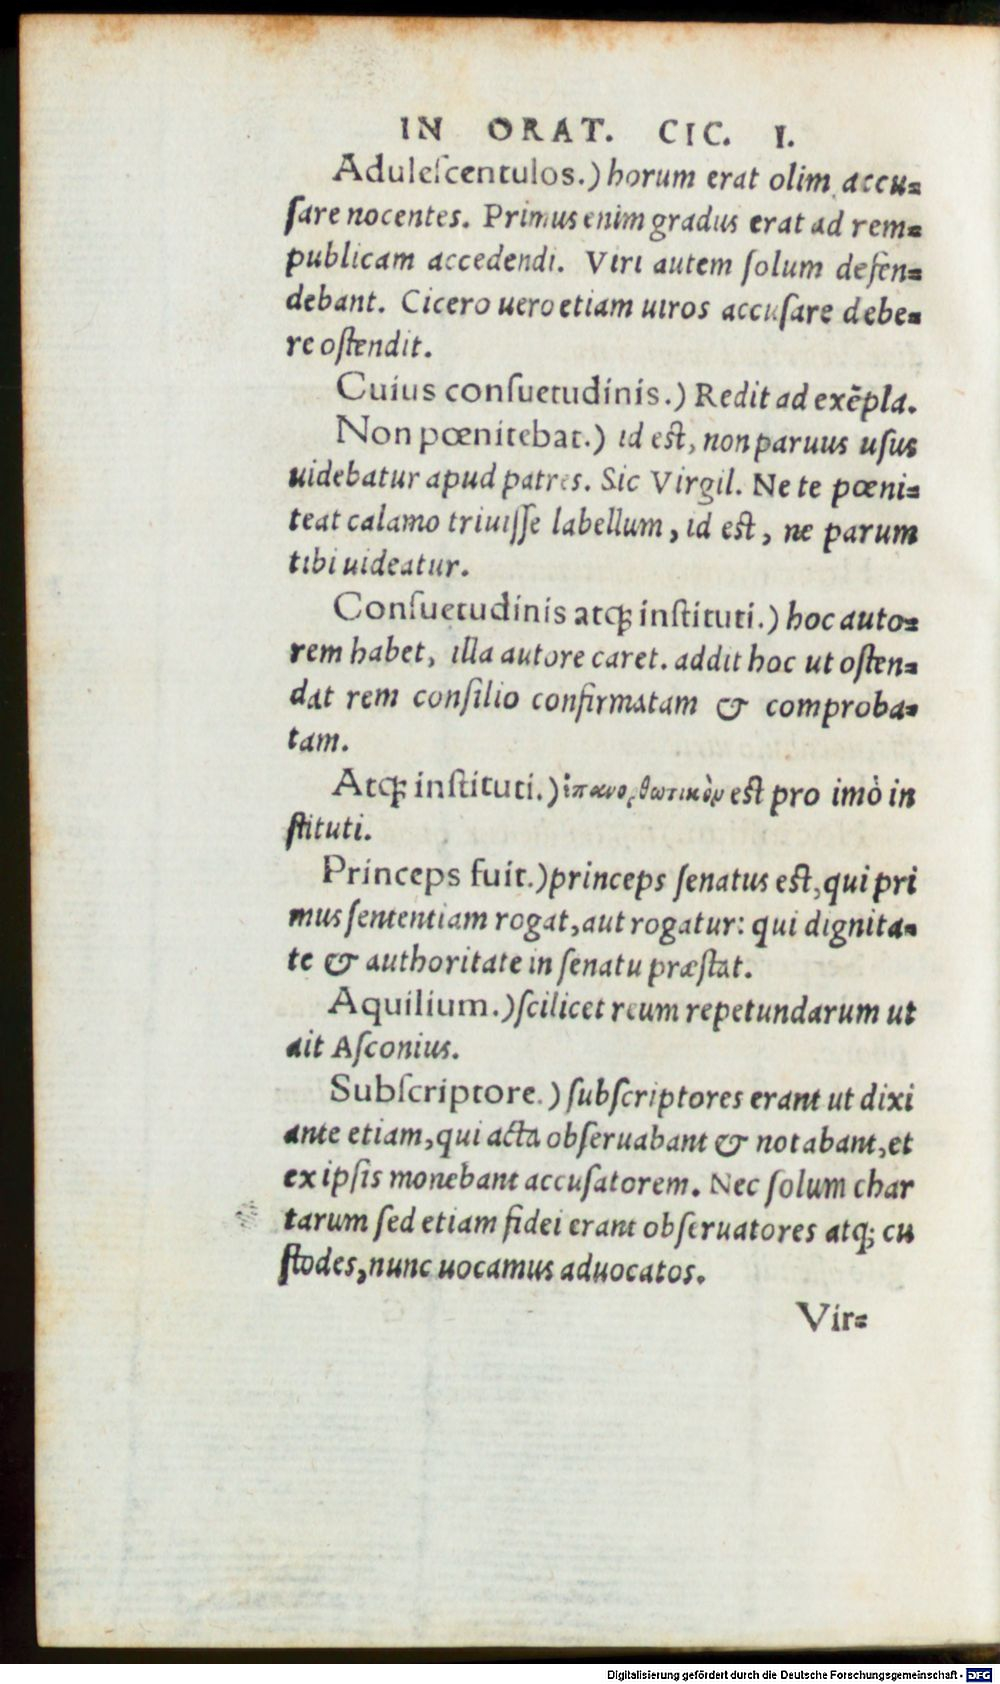 IN ORAT. CIC. I.
Aduleſcentulos.) horum erat olim accu=
ſare nocentes. Primus enim gradus erat ad rem=
publicam accedendi. Viri autem ſolum defen=
debant. Cicero uero etiam uiros accuſare debe=
re oſtendit.
Cuius conſuetudinis.) Redit ad exẽpla.
Non pœnitebat.) id est, non paruus uſus
uidebatur apud patres. Sic Virgil. Ne te pœni=
teat calamo triuiſſe labellum, id est, ne parum
tibi uideatur.
Conſuetudinis atq; inſtituti.) hoc auto=
rem habet, illa autore caret. addit hoc ut oſten=
dat rem conſilio confirmatam & comproba=
tam.
Atq; inſtituti.) ἐπανορθωτικὸν est pro imò in
ſtituti.
Princeps fuit.) princeps ſenatus est, qui pri
mus ſententiam rogat, aut rogatur: qui dignita=
te & authoritate in ſenatu præſtat.
Aquilium.) ſcilicet reum repetundarum ut
ait Aſconius.
Subſcriptore.) ſubſcriptores erant ut dixi
ante etiam, qui acta obſeruabant & notabant, et
ex ipſis monebant accuſatorem. Nec ſolum char
tarum ſed etiam fidei erant obſeruatores atq; cu
ſtodes, nunc uocamus aduocatos.
Vir=
Digitalisierung gefördert durch die Deutsche Forschungsgemeinschaft - DFG